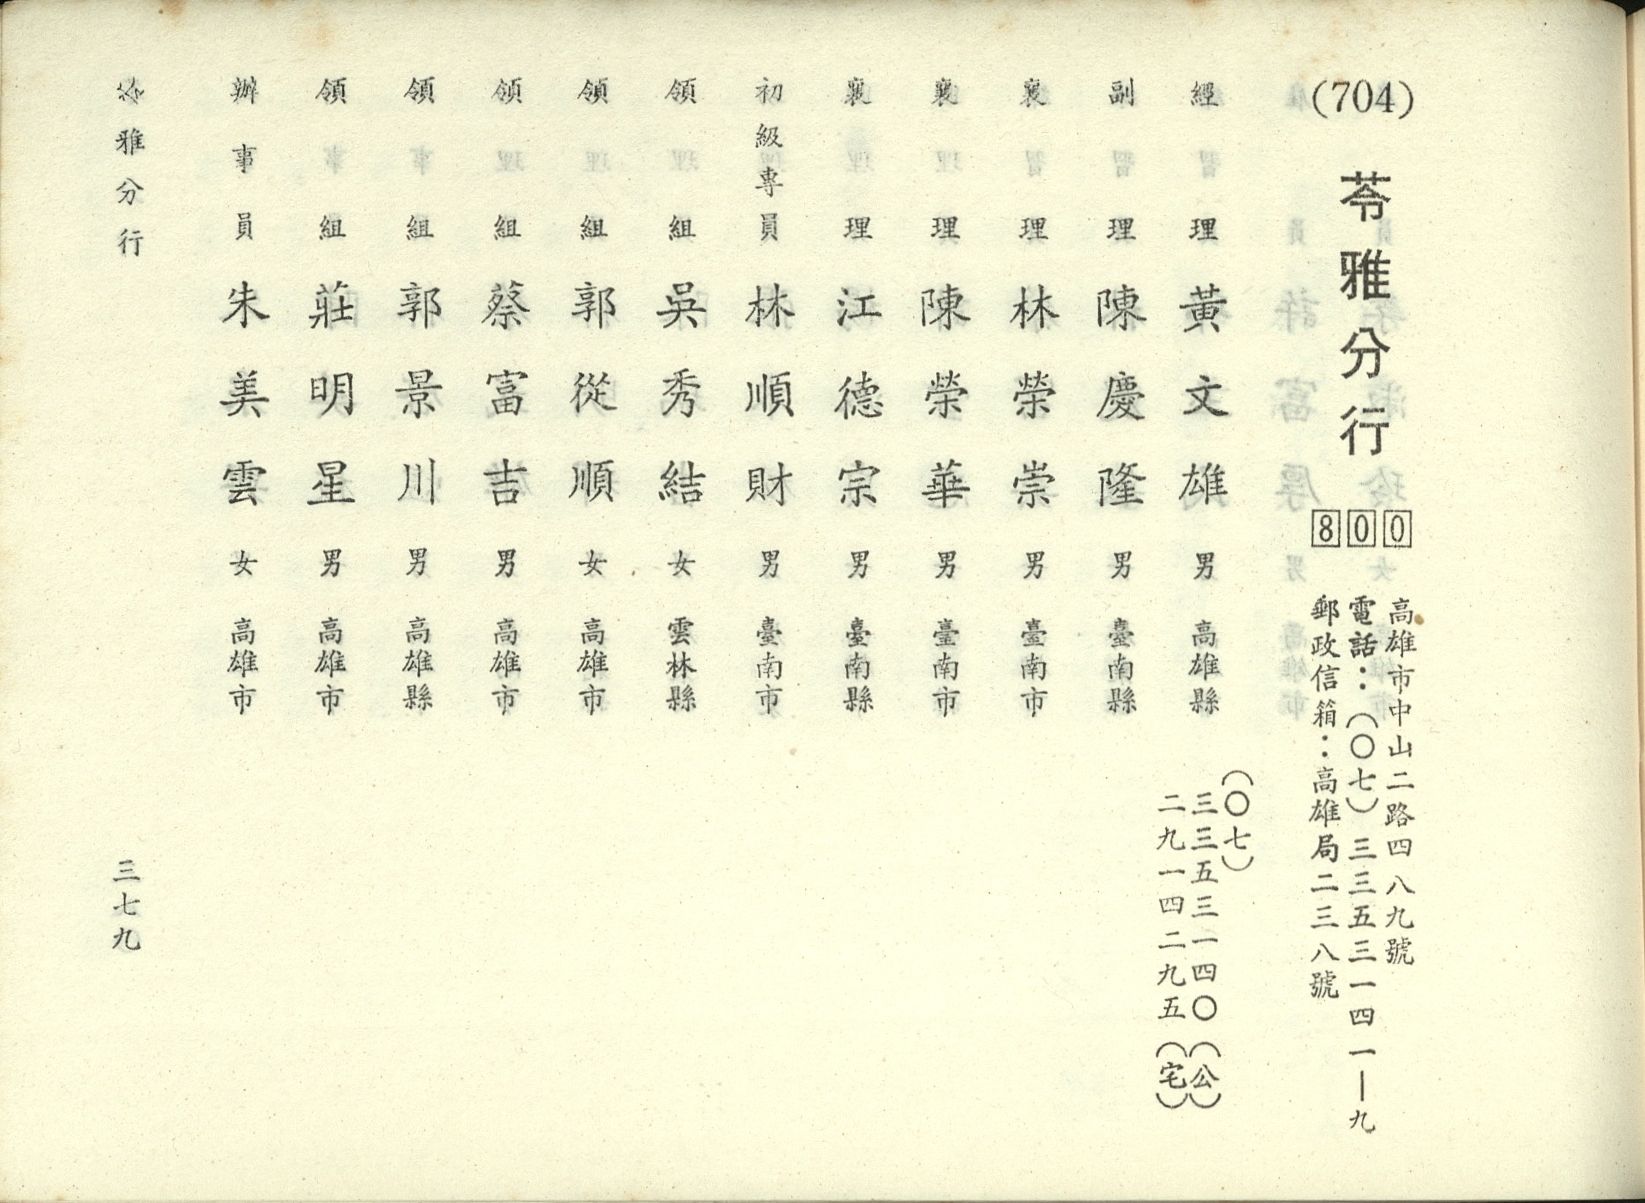 (704)
苓雅分行
800
高雄市中山二路四八九號
電話：(〇七)三三五三一四一—九
郵政信箱：高雄局二三八號
經理 黃文雄 男 高雄縣
(〇七)
三三五三一四〇(公)
二九一四二九五(宅)
副理 陳慶隆 男 臺南縣
襄理 林榮崇 男 臺南市
襄理 陳榮華 男 臺南市
襄理 江德宗 男 臺南縣
初級專員 林順財 男 臺南市
領組 吳秀結 女 雲林縣
領組 郭從順 女 高雄市
領組 蔡富吉 男 高雄市
領組 郭景川 男 高雄縣
領組 莊明星 男 高雄市
辦事員 朱美雲 女 高雄市
苓雅分行
三七九